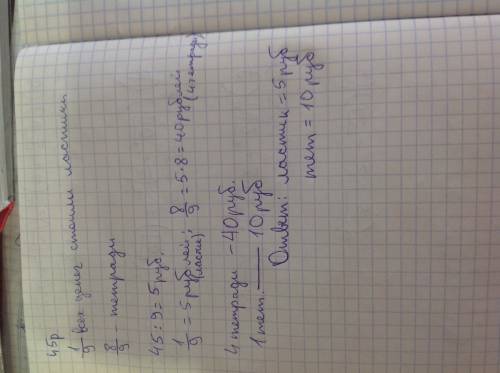 45р
1/9 всех денег стоили ластики
8/9 - тетради
45 : 9 = 5 руб.
1/9 = 5 рублей (ластик); 8/9 = 5 · 8 = 40 рублей (4 тетради)
4 тетради - 40 руб.
1 тет. — 10 руб
Ответ: ластик = 5 руб
тет = 10 руб